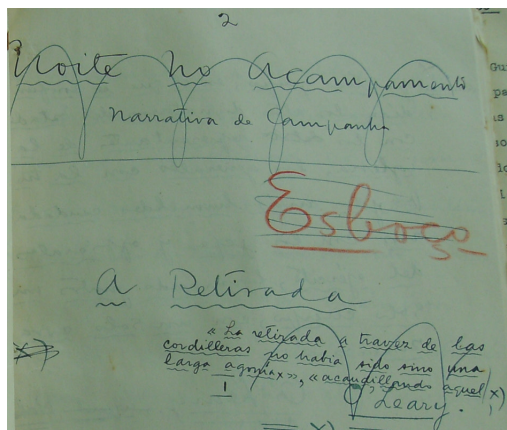 2
Noite no Acampamento
Narrativa de Campanha
Esboço
A Retirada
« La retirada a travez de las
cordilleras no habia sido sino una
larga agonia x», «acaudillando aquel x)
1
O'Leary.
x)